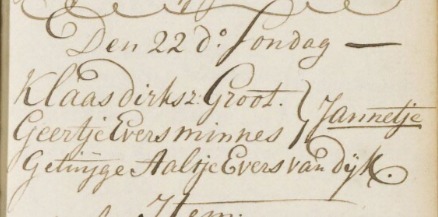 Den 22 do. Sondag —
Klaas dirksz: Groot.
Geertje Evers minnes } Jannetje
Getuijge Aaltje Evers van Dÿk.
Item.